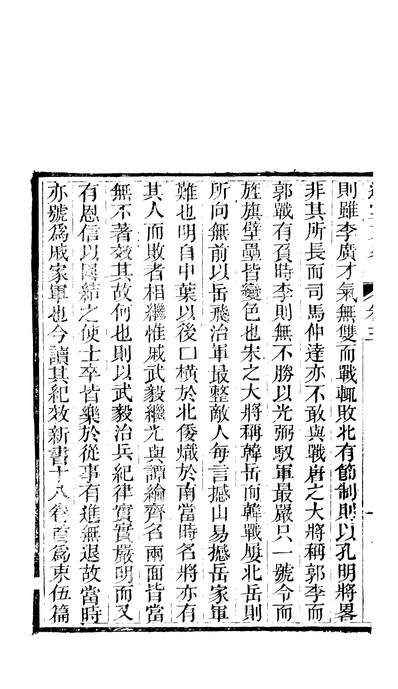 則雖李廣才氣無雙而戰輒敗北有節制則以孔明將畧
非其所長而司馬仲達亦不敢與戰唐之大將稱郭李而
郭戰有負時李則無不勝以光弼馭軍最嚴只一號令而
旌旗壁壘皆變色也宋之大將稱韓岳而韓戰屢北岳則
所向無前以岳飛治軍最整敵人每言撼山易撼岳家軍
難也明自中葉以後口橫於北倭熾於南當時名將亦有
其人而敗者相繼惟戚武毅繼光與譚綸齊名兩面皆當
無不著效其故何也則以武毅治兵紀律實實嚴明而又
有恩信以固結之使士卒皆樂於從事有進無退故當時
亦號為戚家軍也今讀其紀效新書十八卷首為束伍篇